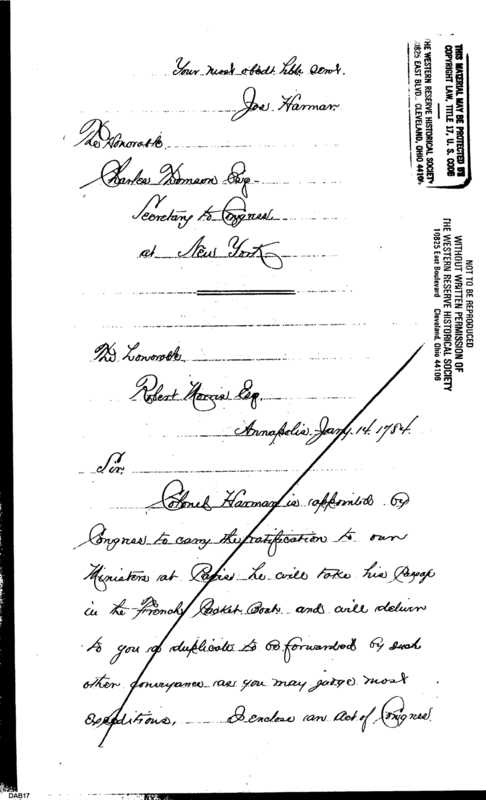 Your most obedt hble Servt.
Jos Harmar
The Honorable
Charles Thomson Esq
Secretary to Congress
at New York
The Honorable
Robert Morris Esq.
Annapolis Jany. 14. 1784.
Sir.
Colonel Harmar is appointed by
Congress to carry the ratification to our
Ministers at Paris he will take his Passage
in the French Packet Boat and will deliver
to you a duplicate to be forwarded by such
other conveyance as you may judge most
expeditious. I enclose an Act of Congress
THIS MATERIAL MAY BE PROTECTED BY
COPYRIGHT LAW, TITLE 17, U. S. CODE
THE WESTERN RESERVE HISTORICAL SOCIETY
10825 EAST BLVD. CLEVELAND, OHIO 44106
NOT TO BE REPRODUCED
WITHOUT WRITTEN PERMISSION OF
THE WESTERN RESERVE HISTORICAL SOCIETY
10825 East Boulevard Cleveland, Ohio 44106
DAB17